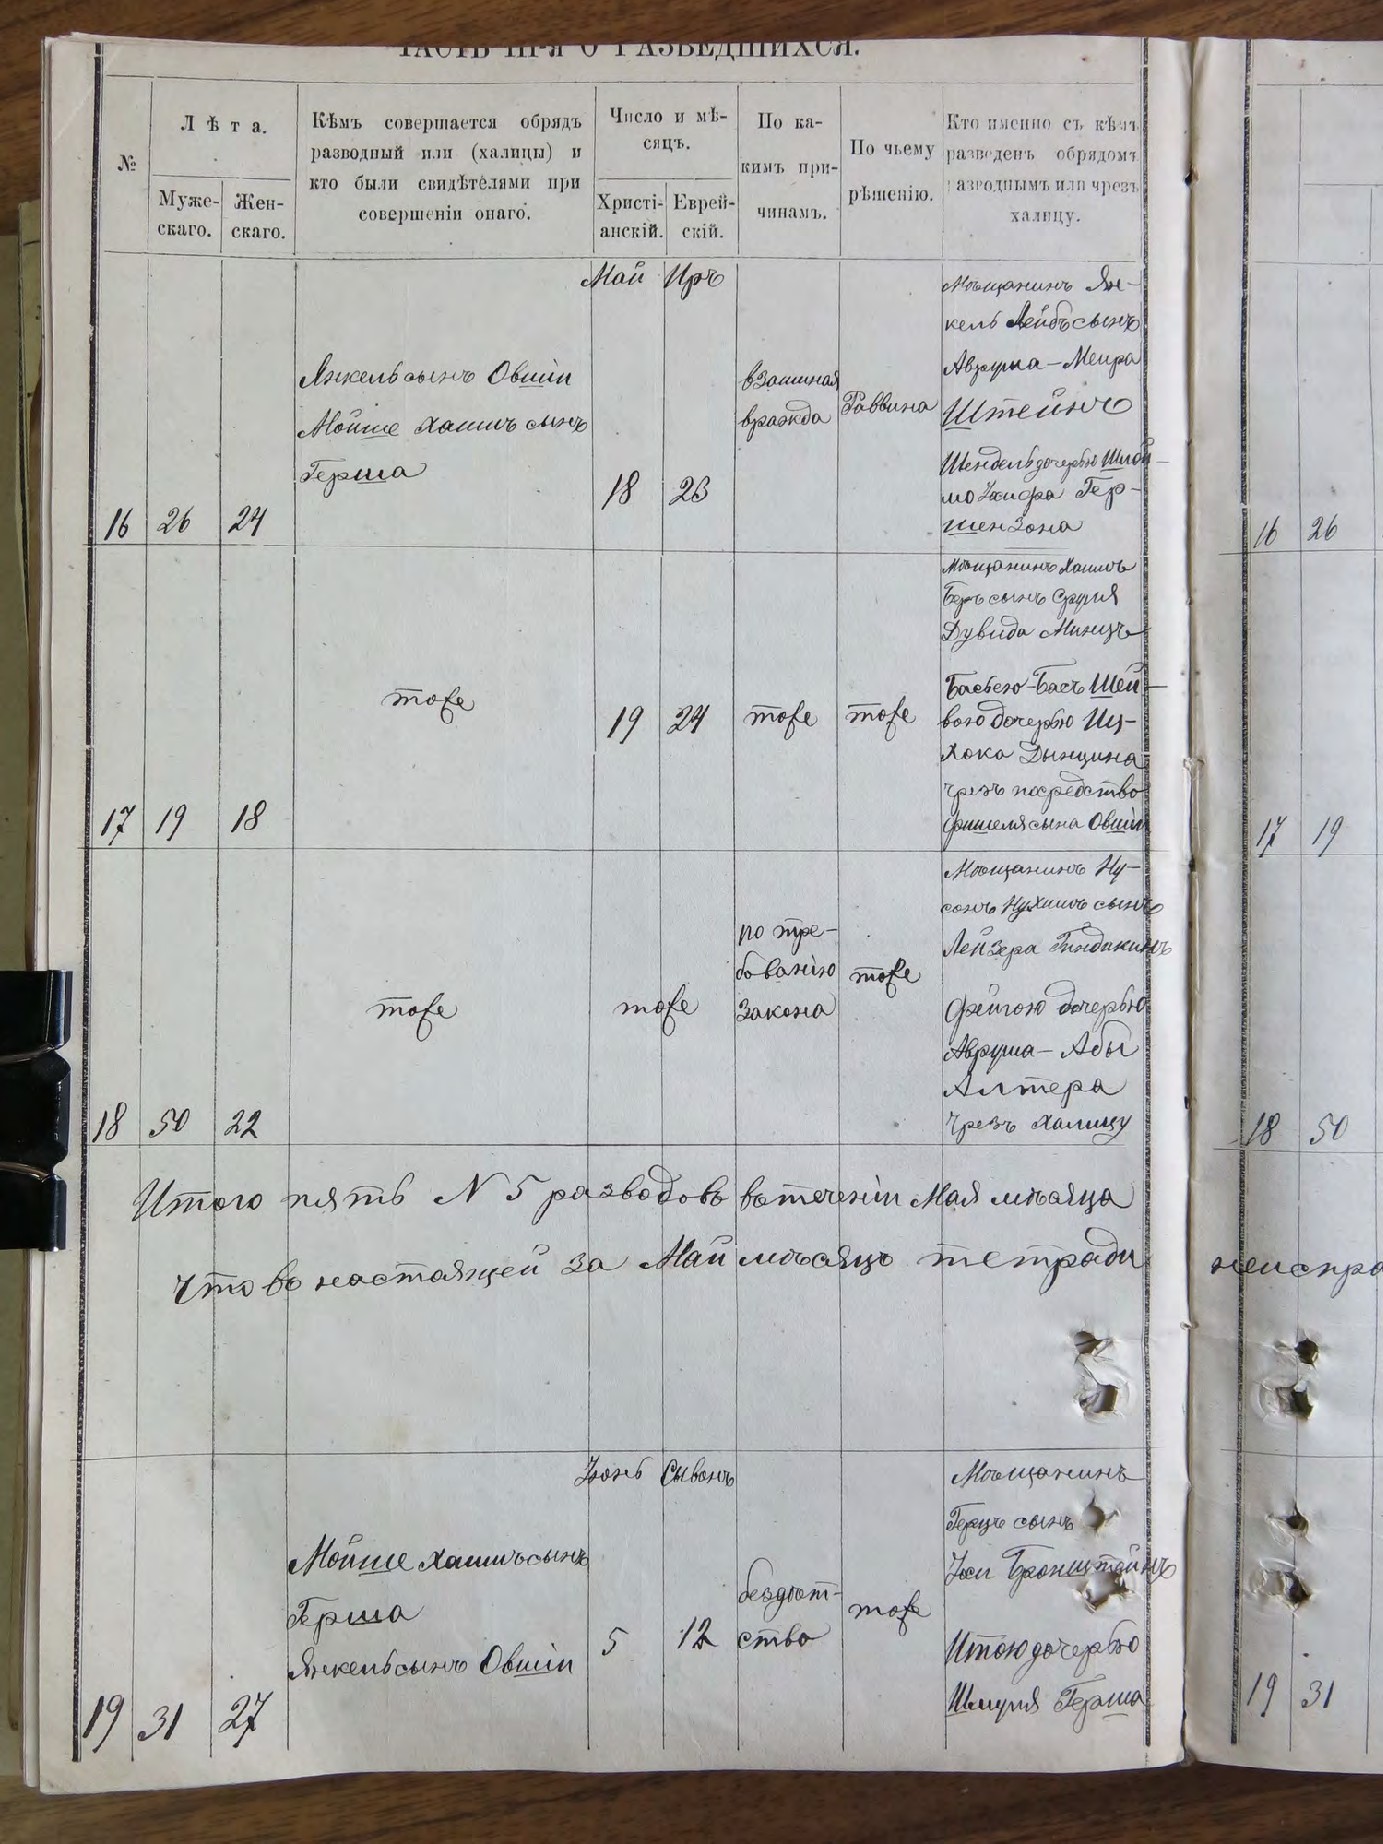 ЧАСТЬ III-Я О РАЗВЕДШИХСЯ.
№
Лѣта.
Муже-
скаго.
Жен-
скаго.
Кѣмъ совершается обрядъ
разводный или (халицы) и
кто были свидѣтелями при
совершеніи онаго.
Число и мѣ-
сяцъ.
Христі-
анскій.
Еврей-
скій.
По ка-
кимъ при-
чинамъ.
По чьему
рѣшенію.
Кто именно съ кѣмъ
разведенъ обрядомъ
разводнымъ или чрезъ
халицу.
Май Иръ
16 26 24
Янкель сынъ Овшіи
Мойше Хаимъ сынъ
Герша
18 23
взаимная
вражда
Раввина
Мѣщанинъ Ян-
кель Лейбъ сынъ
Аврума-Меира
Штейнъ
Шендель дочерью Шлой-
мо Гер-
шензона
17 19 18
тоже
19 24
тоже
тоже
Мѣщанинъ Хаимъ
Беръ сынъ Сруля
Дувида Минцъ
Басьею-Бась Шей-
вою дочерью Иц-
хока
чрезъ посредство
Фишеля сына Овшіи
18 50 22
тоже
тоже
по тре-
бованію
закона
тоже
Мѣщанинъ Ну-
сонъ Нухимъ сынъ
Лейзера
Фейгою дочерью
Аврума-Абы
Алтера
чрезъ халицу
Итого пять N 5 разводовъ въ теченіи Мая мѣсяца
Что въ настоящей за Май мѣсяцъ тетради
Іюнь Сывонъ
19 31 27
Мойше Хаимъ сынъ
Герша
Янкель сынъ Овшіи
5 12
бездѣт-
ство
тоже
Мѣщанинъ
Герцъ сынъ
Іоси Бронштейнъ
Итою дочерью
Шмуля Герша
16 26
17 19
18 50
неиспра
19 31